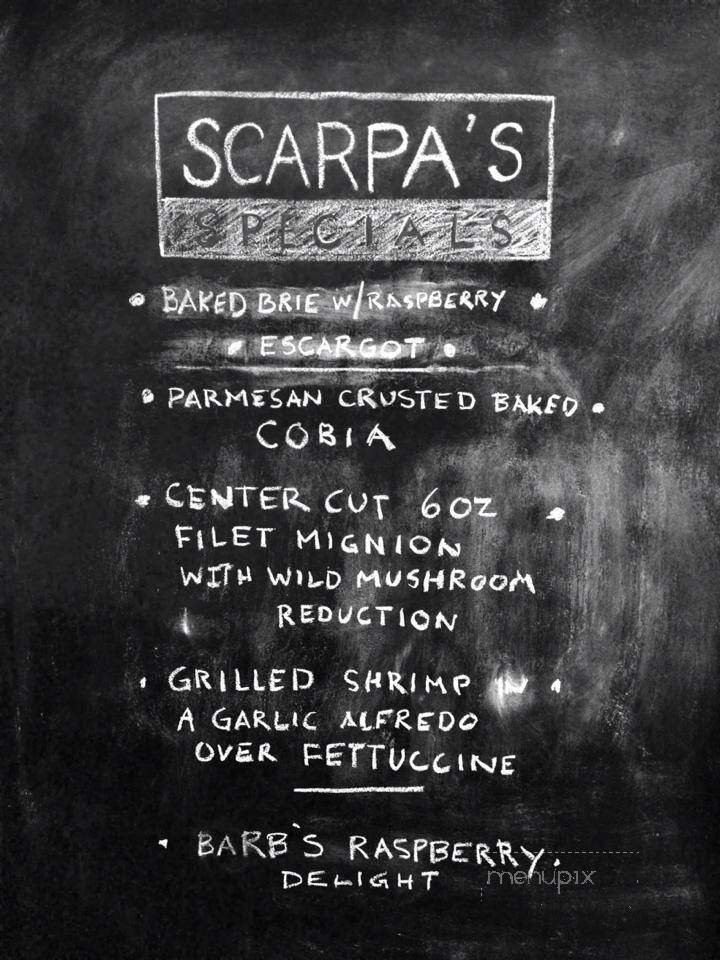 SCARPA'S
SPECIALS
• BAKED BRIE W/RASPBERRY •
• ESCARGOT •
• PARMESAN CRUSTED BAKED •
COBIA
• CENTER CUT 6 OZ •
FILET MIGNION
WITH WILD MUSHROOM
REDUCTION
• GRILLED SHRIMP IN •
A GARLIC ALFREDO
OVER FETTUCCINE
• BARB'S RASPBERRY •
DELIGHT
menupix